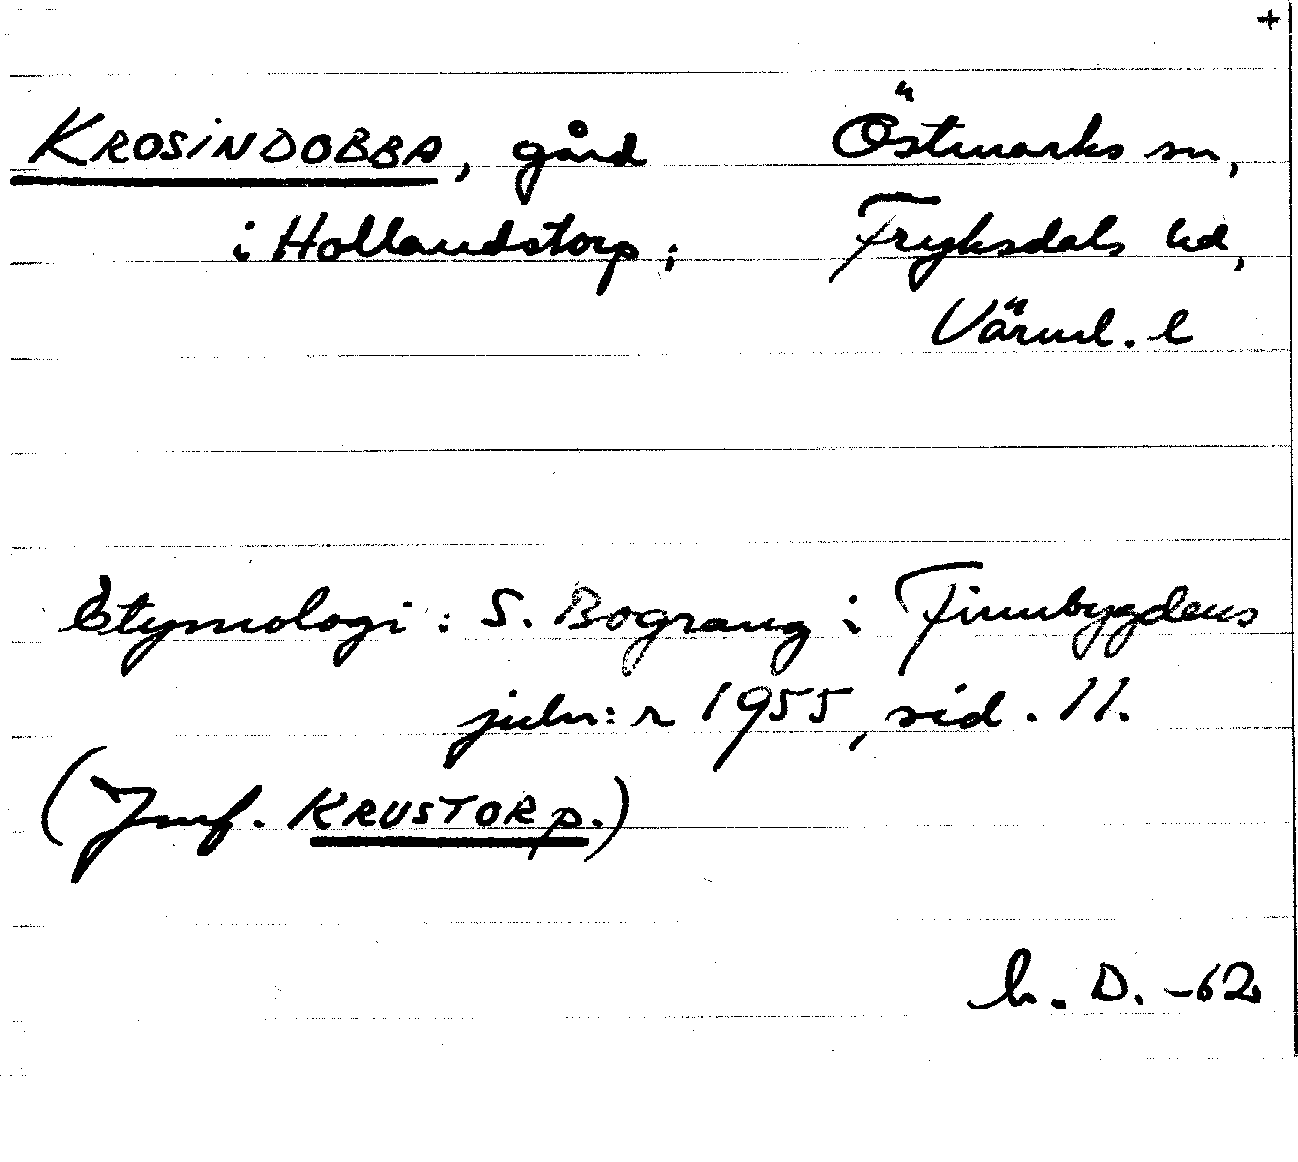 +
KROSINDOBBA, gård Östmarks sn,
i Hollandstorp; Fryksdals hd,
Värml. l
Etymologi: S. Bograng i Finnbygdens
juln:r 1955, sid. 11.
(Jmf. KRUSTORP.)
h. D. -62